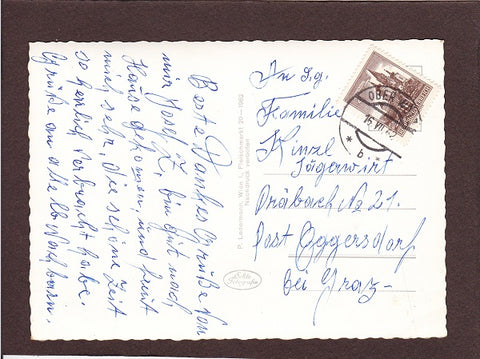 Beste Dankes Grüße von
mir Josef Z, bin gut nach
Hause gekommen, und freut
mich sehr, die schöne Zeit
so herlich verbracht habe.
Grüße an alle Nachbarn.
P. Ledermann, Wien I, Fleischmarkt 20 —
Nachdruck verboten
An Sg.
Familie
Kinzl
Jägerwirt
Präbach No 21.
Post Eggersdorf
bei Graz-
OBER
15.VII.
* b